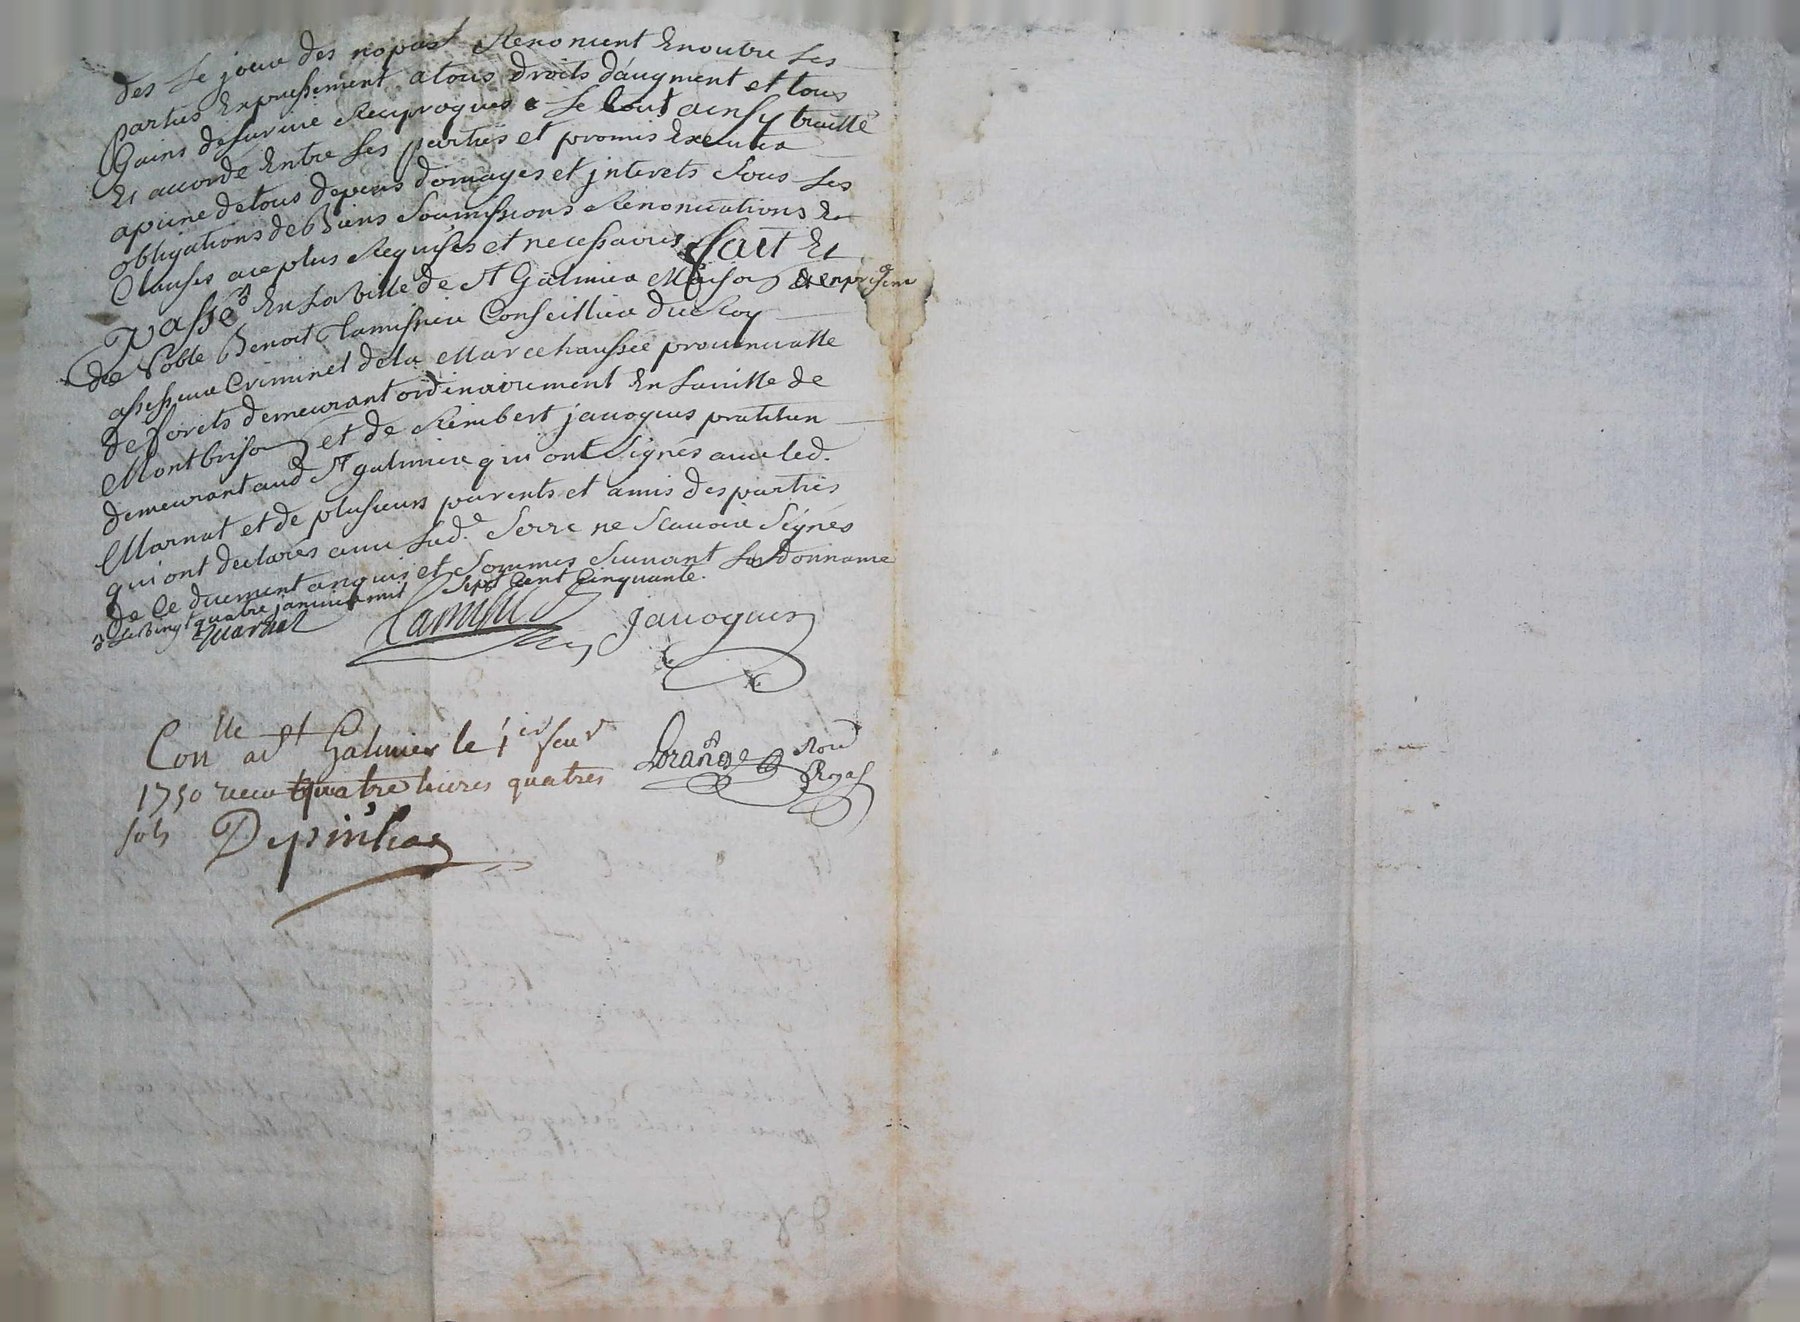 des le jour des nopas Renoncent Enoutre les
partus Expressement atous droits d'augment et tous
Gains desurvie Reciproques Le tout ainsy traitté
Et accordé Entre les parties et promis Executer
apeine detous depens domages et jnterets Sous les
obligations deBiens Soumissions Renonciations Et
Clauses aceplus Requises et necessaires fait Et
Passé En la Ville de St Galmier Maison & enpresence
de Noble Benoit Lamissier Conseillier du Roy
assesseur Criminel dela Marechaussée prouincialle
de forets demeurant ordinairement En laville de
Montbrison et de Rimbert javogues pratitien
demeurant aud St galmier qui ont Signés avec led.
Marnat et de plusieurs parents et amis des parties
qui ont declarés avec lad.e Serre ne Scavoir Signés
de Ce duement enquis et Sommés Suivant Lordonnance
Levingt quatre janvier mil Sept Cent Cinquante.
Marnat Javogues
Conlle a St Galmier le 1er feur
1750 receu quatre livres quatres
sols Depinhac
Lorange Nore Royal